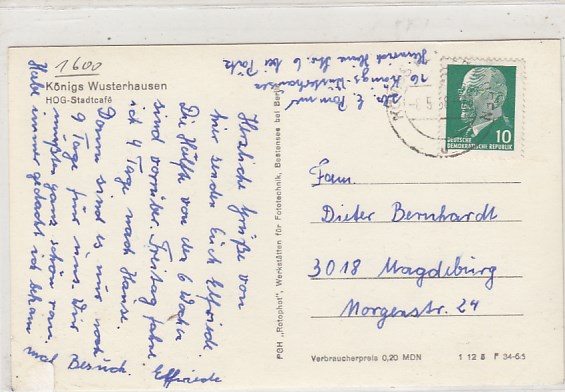 1600
Königs Wusterhausen
HOG-Stadtcafé
Herzliche Grüße von
hier senden Euch Elfriede.
Die Hälfte von der 6 Wochen
sind vorrüber. Freitag fahre
ich 4 Tage nach Hause.
Dann sind es nur noch
9 Tage für uns. Wir
mußten ganz schön ran.
Habe immer gedacht ich bekam
mal Besuch. Elfriede
Heinrich Heine Str. 6 bei Pätz
16 Königs-Wusterhausen
PGH „Rotophot", Werkstätten für Fototechnik, Bestensee bei Berlin
10
DEUTSCHE
DEMOKRATISCHE REPUBLIK
Fam.
Dieter Bernhardt
3018 Magdeburg
Morgenstr. 24
Verbraucherpreis 0,20 MDN
1 12 8 F 34-65